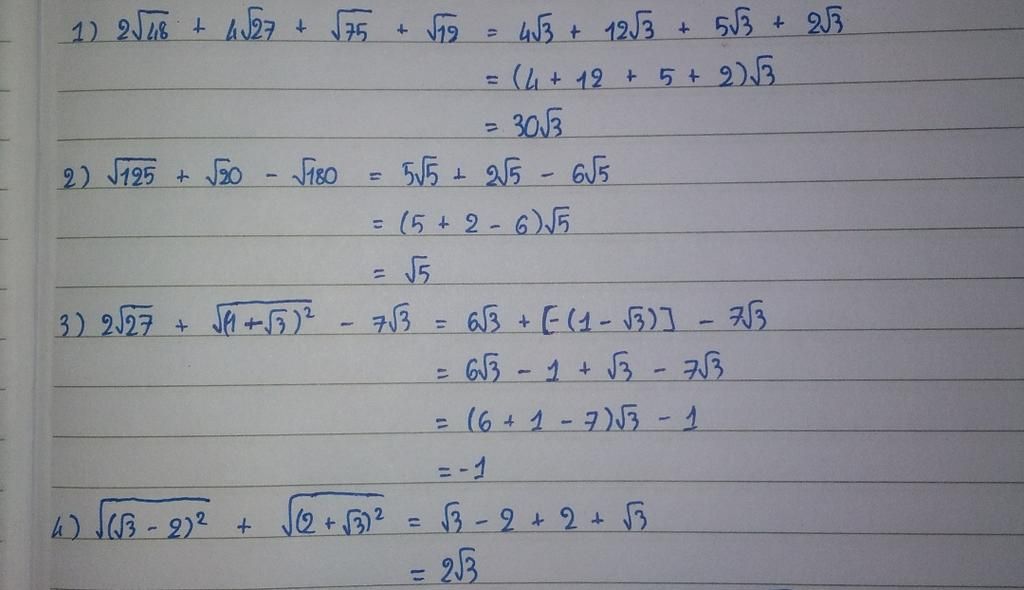 1) 2√48 + 4√27 + √75 + √12 = 4√3 + 12√3 + 5√3 + 2√3
= (4 + 12 + 5 + 2)√3
= 30√3
2) √125 + √20 - √180 = 5√5 + 2√5 - 6√5
= (5 + 2 - 6)√5
= √5
3) 2√27 + √(1+√3)² - 7√3 = 6√3 + [-(1-√3)] - 7√3
= 6√3 - 1 + √3 - 7√3
= (6 + 1 - 7)√3 - 1
= -1
4) √(√3 - 2)² + √(2 + √3)² = √3 - 2 + 2 + √3
= 2√3